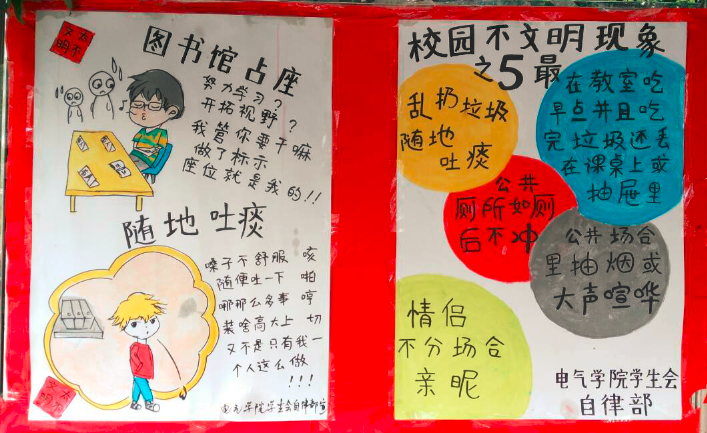 太不
文明
图书馆占座
努力学习？
开拓视野？
我管你要干嘛
做了标示
座位就是我的！！
随地吐痰
嗓子不舒服 咳
随便吐一下 啪
哪那么多事 哼
装啥高大上 切
又不是只有我一
个人这么做
！！！
太不
文明
电气学院学生会自律部宣
校园不文明现象
之5最
乱扔垃圾
随地
吐痰
在教室吃
早点并且吃
完垃圾还丢
在课桌上或
抽屉里
公共
厕所如厕
后不冲
公共场合
里抽烟或
大声喧哗
情侣
不分场合
亲昵
电气学院学生会
自律部